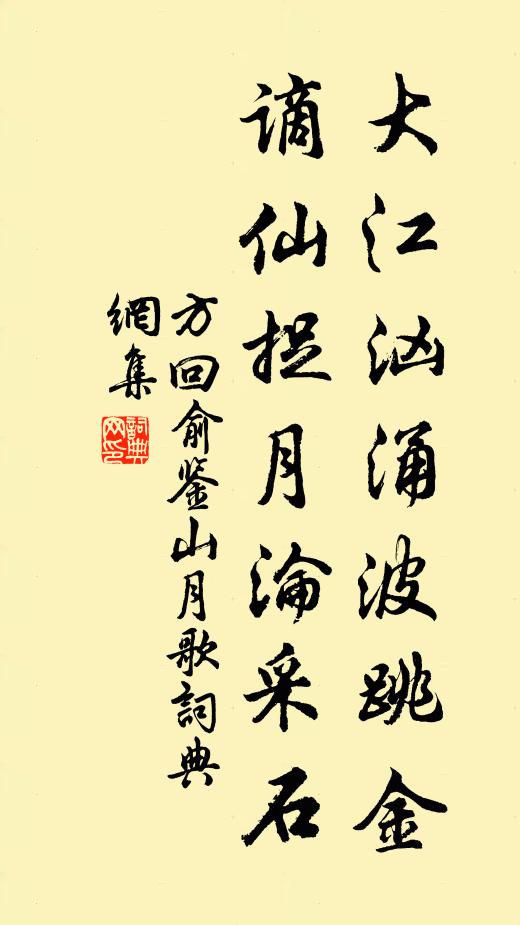 大江汹涌波跳金
谪仙捉月沦采石
方回俞鉴山月歌詞典
網集
詞典网印